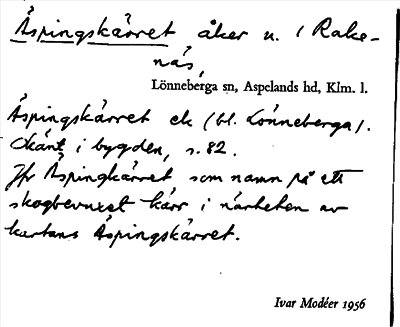 Äspingskärret åker u. / Rake-
näs,
Lönneberga sn, Aspelands hd, Klm. l.
Äspingskärret ek (bl. Lönneberga).
Okänt i bygden, s. 82.
Jfr Äspingkärret som namn på ett
skogbevuxet kärr i närheten av
kartans Äspingskärret.
Ivar Modéer 1956